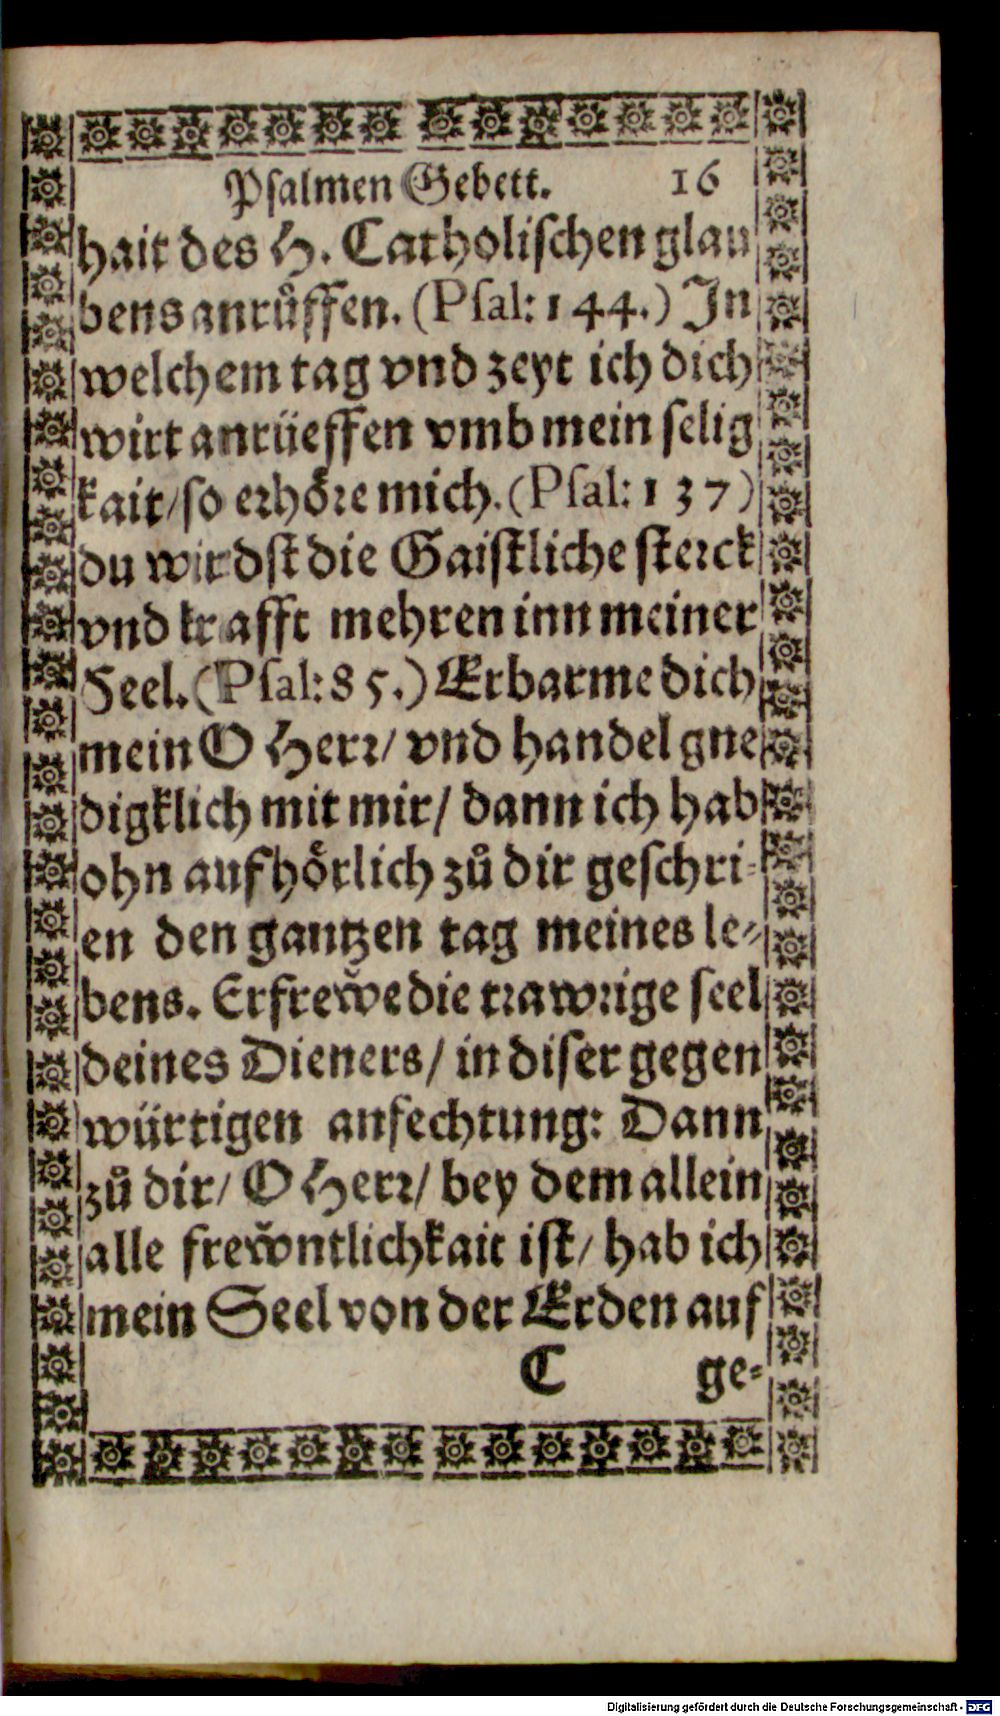 Psalmen Gebett. 16
hait des H. Catholischen glau
bens anrůffen. (Psal: 144.) In
welchem tag vnd zeyt ich dich
wirt anrüeffen vmb mein selig
kait/ so erhöre mich. (Psal: 137)
du wirdst die Gaistliche sterck
vnd krafft mehren inn meiner
Seel. (Psal: 85.) Erbarme dich
mein O Herr/ vnd handel gne
digklich mit mir/ dann ich hab
ohn aufhörlich zů dir geschri-
en den gantzen tag meines le-
bens. Erfrewe die trawrige seel
deines Dieners/ in diser gegen
würtigen anfechtung: Dann
zů dir/ O Herr/ bey dem allein
alle frewntlichkait ist/ hab ich
mein Seel von der Erden auf
C ge-
Digitalisierung gefördert durch die Deutsche Forschungsgemeinschaft - DFG